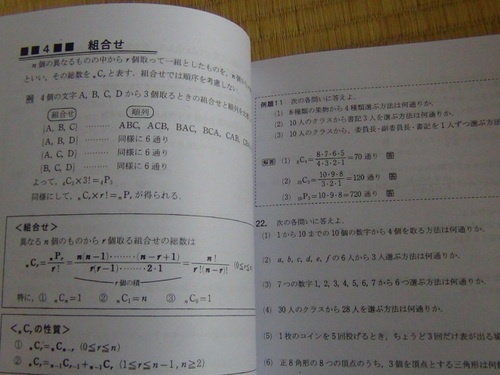 ■■4■■ 組合せ
n個の異なるものの中からr個取って一組としたものを、n個の
といい、その総数を nCr と表す. 組合せでは順序を考慮しない.
例 4個の文字A, B, C, Dから3個取るときの組合せと順列を
組合せ 順列
{A, B, C} ……… ABC, ACB, BAC, BCA, CAB,
{A, B, D} ……… 同様に6通り
{A, C, D} ……… 同様に6通り
{B, C, D} ……… 同様に6通り
よって, ₄C₃×3!=₄P₃
同様にして, nCr×r!=nPr が得られる.
<組合せ>
異なるn個のものからr個取る組合せの総数は
nCr = nPr/r! = n(n-1)……(n-r+1)/r(r-1)……2・1 = n!/r!(n-r)! (0≦r≦
r個の積
特に, ① nCn=1 ② nC₁=n ③ nC₀=1
<nCrの性質>
① nCr=nCn-r (0≦r≦n)
② nCr=n-1Cr-1+n-1Cr (1≦r≦n-1, n≧2)
例題11 次の各問いに答えよ.
(1) 8種類の果物から4種類選ぶ方法は何通りか.
(2) 10人のクラスから書記3人を選ぶ方法は何通りか.
(3) 10人のクラスから, 委員長・副委員長・書記を1人ずつ選ぶ方
解答 (1) ₈C₄=8・7・6・5/4・3・2・1=70通り 答
(2) ₁₀C₃=10・9・8/3・2・1=120通り 答
(3) ₁₀P₃=10・9・8=720通り 答
22. 次の各問いに答えよ.
(1) 1から10までの10個の数字から4個を取る方法は何通りか.
(2) a, b, c, d, e, fの6人から3人選ぶ方法は何通りか.
(3) 7つの数字1, 2, 3, 4, 5, 6, 7から6つ選ぶ方法は何通りか.
(4) 30人のクラスから28人を選ぶ方法は何通りか.
(5) 1枚のコインを5回投げるとき, ちょうど3回だけ表が出る場
(6) 正8角形の8つの頂点のうち, 3個を頂点とする三角形は何